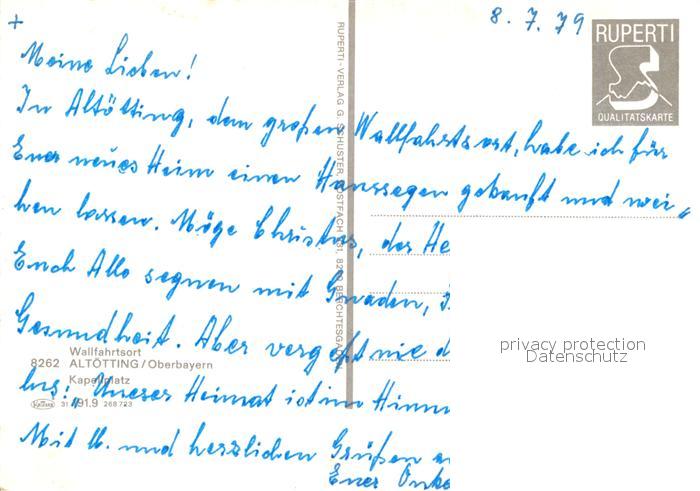 8. 7. 79
Meine Lieben!
In Altötting, dem großen Wallfahrtsort, habe ich für
Euer neues Heim einen Haussegen gekauft und wei„
hen lassen. Möge Christus, der He
Euch Alle segnen mit Gnaden,
Gesundheit. Aber vergeßt nie d
„Unsere Heimat ist im Himm
Mit lb. und herzlichen Grüßen
Euer Onke
RUPERTI
QUALITÄTSKARTE
RUPERTI-VERLAG G. SCHUSTER, POSTFACH 8240 BERCHTESGADEN
Wallfahrtsort
8262 ALTÖTTING/Oberbayern
Kapellplatz
268 723
privacy protection
Datenschutz